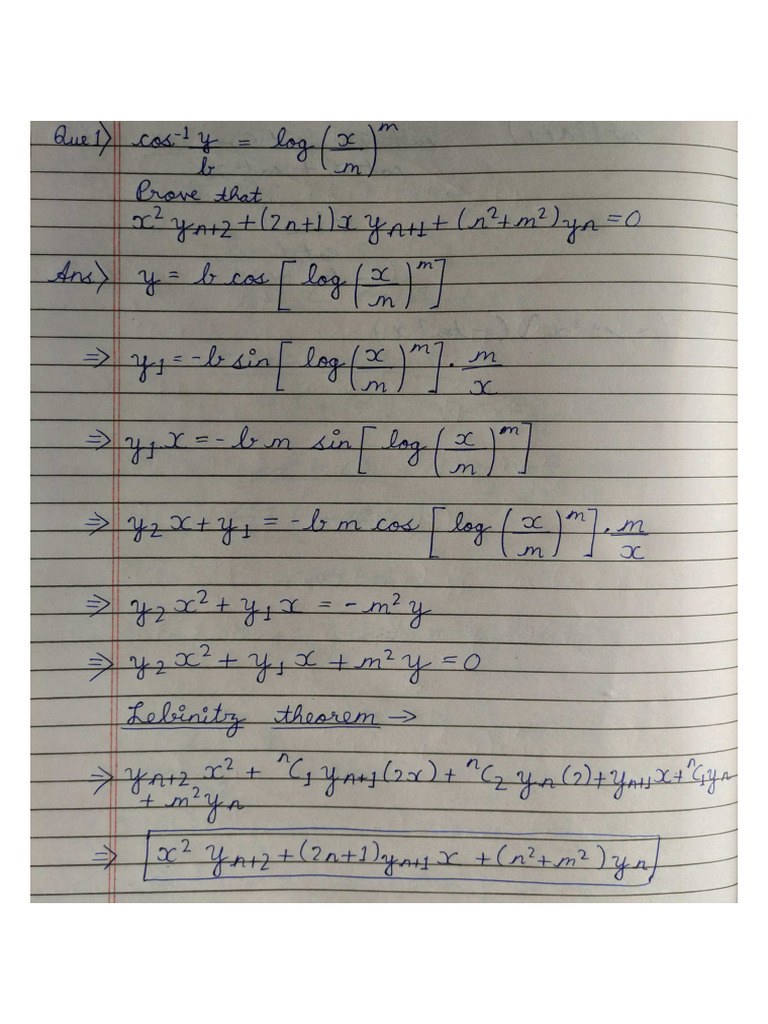 Que 1) cos⁻¹ y/b = log(x/m)^m
Prove that
x² yₙ₊₂ + (2n+1)x yₙ₊₁ + (n²+m²)yₙ = 0
Ans) y = b cos[log(x/m)^m]
⇒ y₁ = -b sin[log(x/m)^m] · m/x
⇒ y₁x = -bm sin[log(x/m)^m]
⇒ y₂x + y₁ = -bm cos[log(x/m)^m] · m/x
⇒ y₂x² + y₁x = -m²y
⇒ y₂x² + y₁x + m²y = 0
Lebinitz theorem →
⇒ yₙ₊₂ x² + ⁿC₁ yₙ₊₁(2x) + ⁿC₂ yₙ(2) + yₙ₊₁x + ⁿC₁yₙ
+ m²yₙ
⇒ x² yₙ₊₂ + (2n+1)yₙ₊₁x + (n²+m²)yₙ